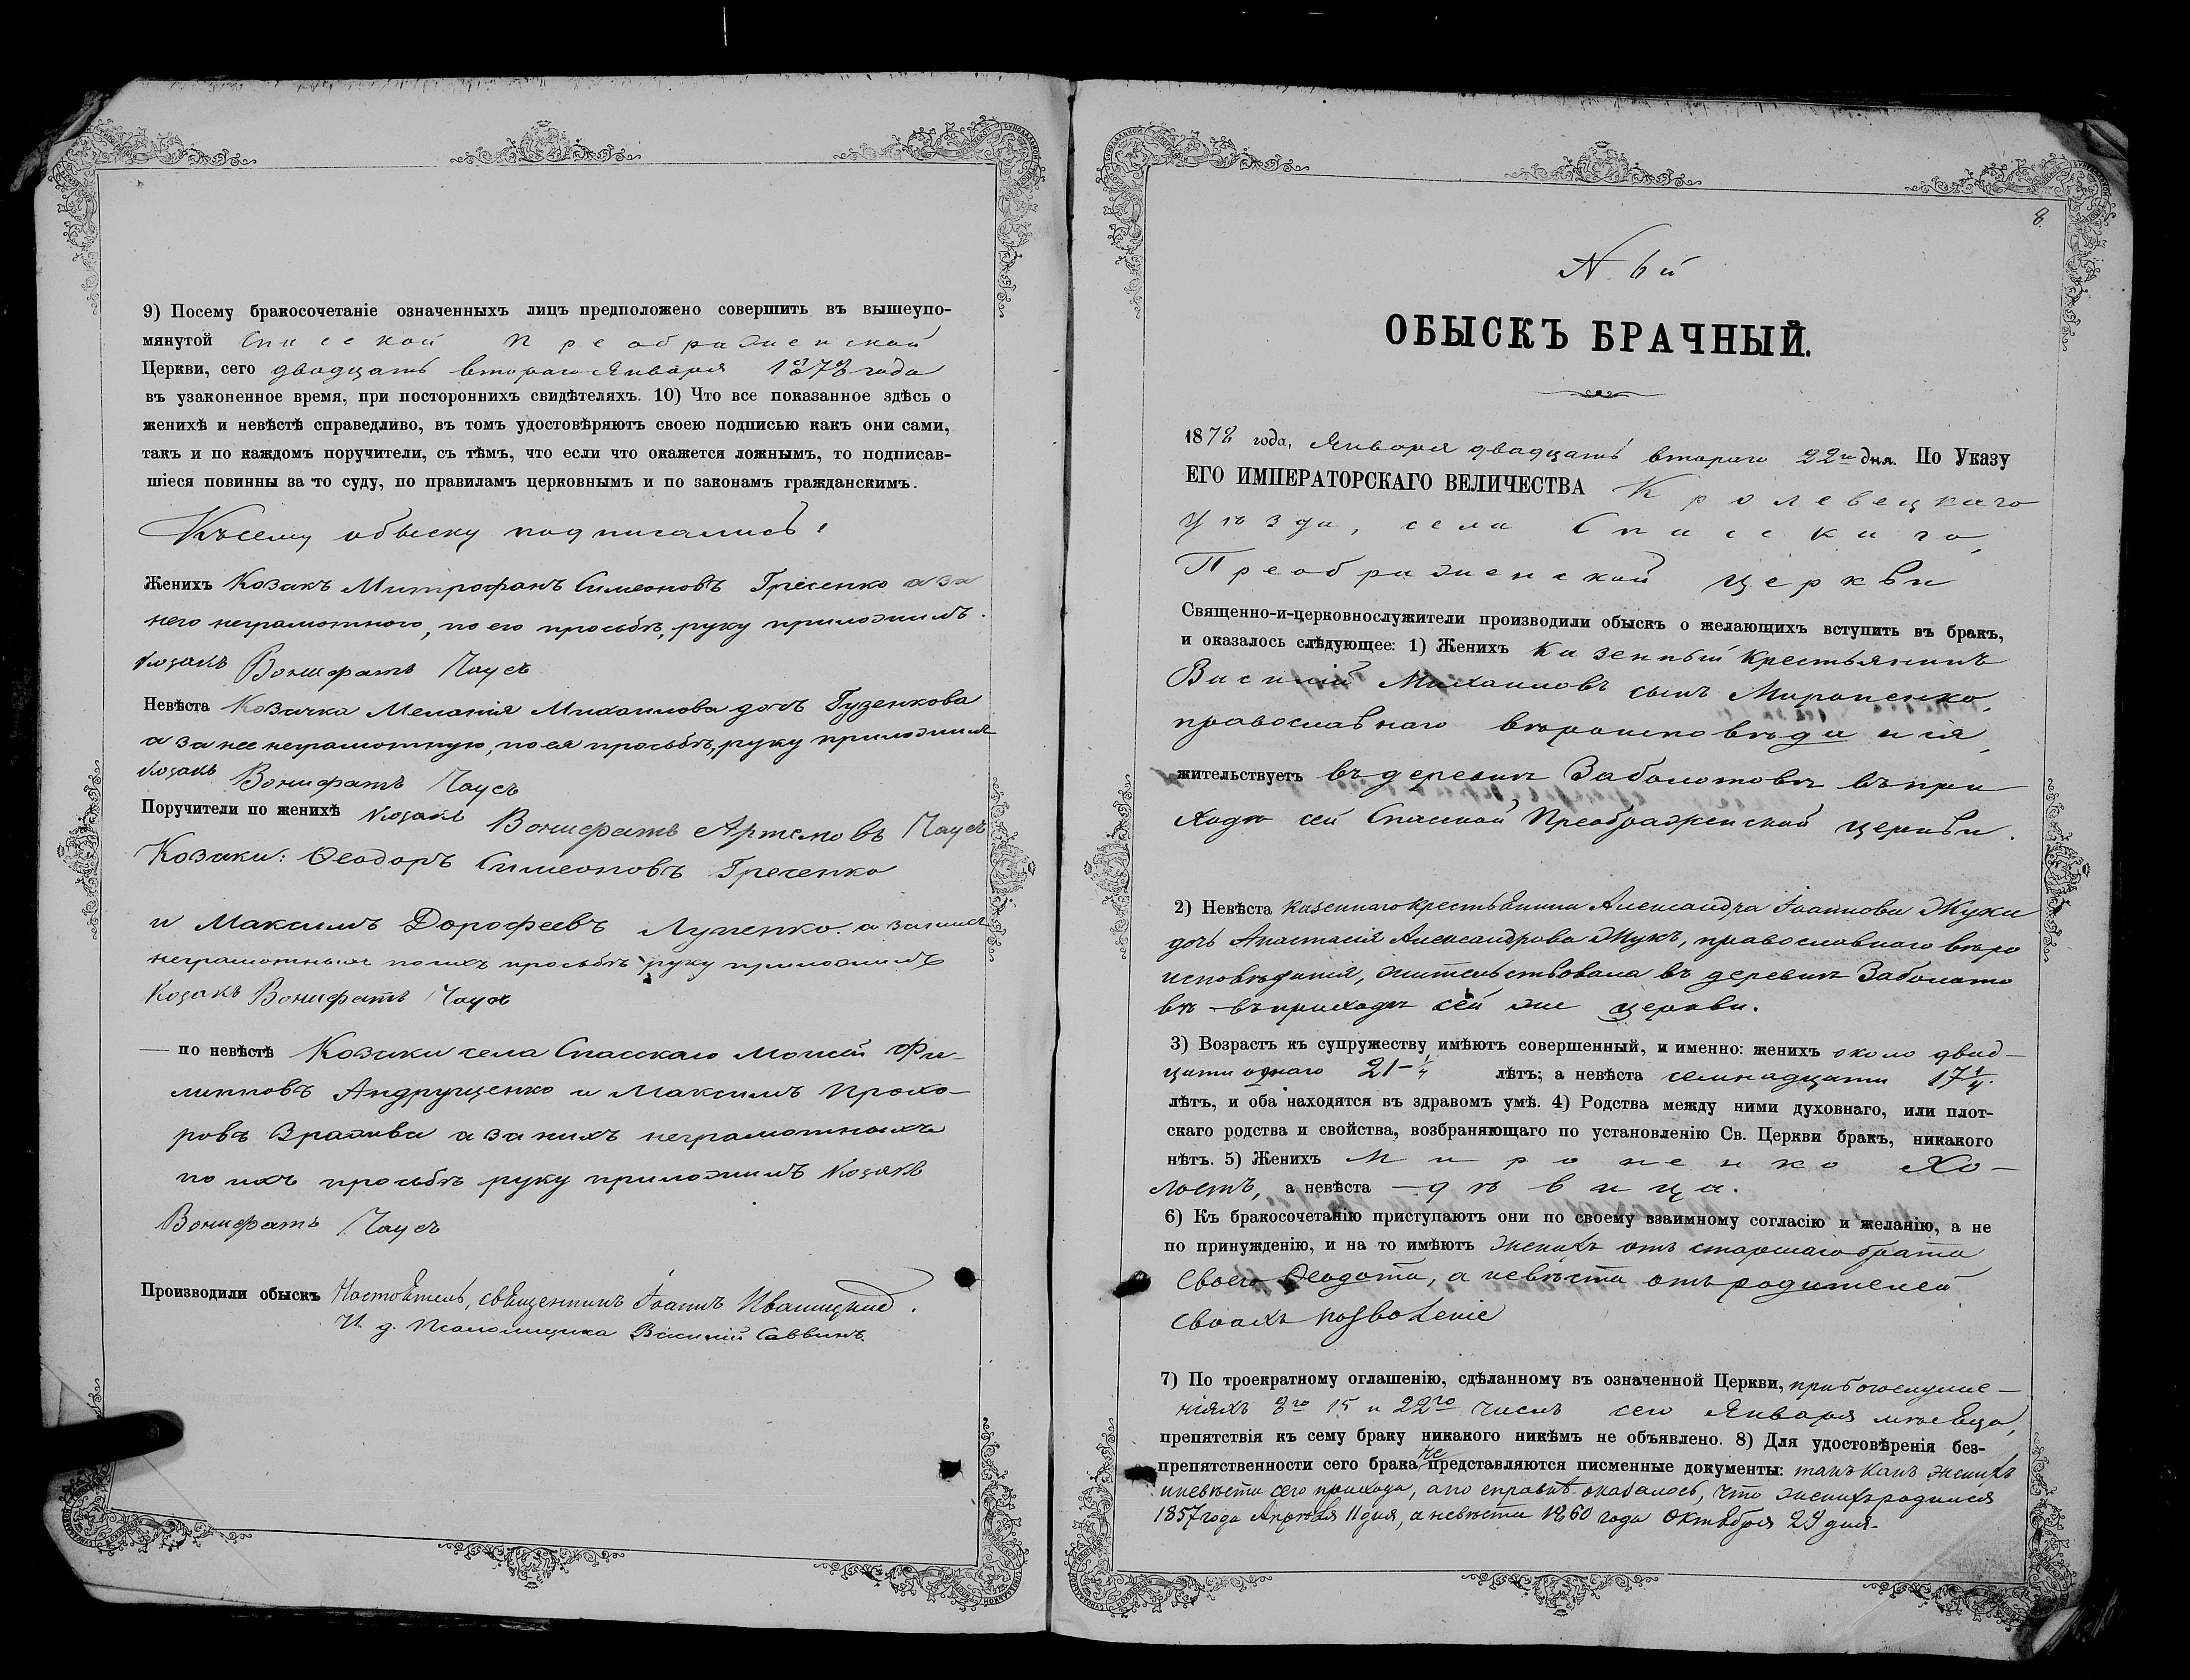 9) Посему бракосочетаніе означенныхъ лицъ предположено совершить въ вышеупо-
мянутой Спасской Преображенской
Церкви, сего двадцать втораго Января 1878 года
въ узаконенное время, при постороннихъ свидѣтеляхъ. 10) Что все показанное здѣсь о
женихѣ и невѣстѣ справедливо, въ томъ удостовѣряютъ своею подписью какъ они сами,
такъ и по каждомъ поручители, съ тѣмъ, что если что окажется ложнымъ, то подписав-
шіеся повинны за то суду, по правиламъ церковнымъ и по законамъ гражданскимъ.
Къ сему обыску подписались:
Женихъ Козакъ Митрофанъ Симеоновъ Гресенко а за
него неграмотного, по его просьбѣ, руку приложилъ
Козакъ Вонифатъ Чаусъ
Невѣста Козачка Меланія Михаилова дочь Гузенкова
а за нее неграмотную, по ея просьбѣ, руку приложилъ
Козакъ Вонифатъ Чаусъ
Поручители по женихѣ Козакъ Вонифатъ Артемовъ Чаусъ
Козаки: Ѳеодоръ Симеоновъ Гресенко
и Максимъ Дорофеевъ Лупенко. а за нихъ
неграмотныхъ по ихъ просьбѣ руку приложилъ
Козакъ Вонифатъ Чаусъ
— по невѣстѣ Козаки села Спасскаго Моисей Фи-
липповъ Андрущенко и Максимъ Прохо-
ровъ а за нихъ неграмотныхъ
по ихъ просьбѣ руку приложилъ Козакъ
Вонифатъ Чаусъ
Производили обыскъ Настоятель, священникъ Іоаннъ Иваницкій.
И. д. Псаломщика Василій Саввинъ.
8.
N. 6й
ОБЫСКЪ БРАЧНЫЙ.
1878 года, Января двадцать втораго 22го дня. По Указу
ЕГО ИМПЕРАТОРСКАГО ВЕЛИЧЕСТВА Кролевецкаго
уѣзда, села Спасскаго,
Преображенской церкви
Священно-и-церковнослужители производили обыскъ о желающихъ вступить въ бракъ,
и оказалось слѣдующее: 1) Женихъ казенный крестьянинъ
Василій Михаиловъ сынъ Мироненко,
православнаго вѣроисповѣданія,
жительствуетъ въ деревни Заболотовѣ въ при
ходѣ сей Спасской Преображенской церкви.
2) Невѣста казеннаго крестьянина Александра Іоаннова Жука
дочь Анастасія Александрова Жукъ, православнаго вѣро
исповѣданія, жительствовала въ деревни Заболото
вѣ въ приходѣ сей же церкви.
3) Возрастъ къ супружеству имѣютъ совершенный, и именно: женихъ около двад-
цати однаго 21-¼ лѣтъ; а невѣста семнадцати 17¼.
лѣтъ, и оба находятся въ здравомъ умѣ. 4) Родства между ними духовнаго, или плот-
скаго родства и свойства, возбраняющаго по установленію Св. Церкви бракъ, никакого
нѣтъ. 5) Женихъ Мироненко хо-
лостъ, а невѣста — дѣвица.
6) Къ бракосочетанію приступаютъ они по своему взаимному согласію и желанію, а не
по принужденію, и на то имѣютъ женихъ отъ старшаго брата
своего Ѳеодота, а невѣста отъ родителей
своихъ позволеніе
7) По троекратному оглашенію, сдѣланному въ означенной Церкви, при богослуже-
ніяхъ 8го 15 и 22го числъ сего Января мѣсяца,
препятствія къ сему браку никакого никѣмъ не объявлено. 8) Для удостовѣренія без-
препятственности сего брака не представляются писменные документы: такъ какъ женихъ
и невѣста сего прихода, а по справкѣ оказалось, что женихъ родился
1857 года Апрѣля 11 дня, а невѣста 1860 года Октября 29 дня.